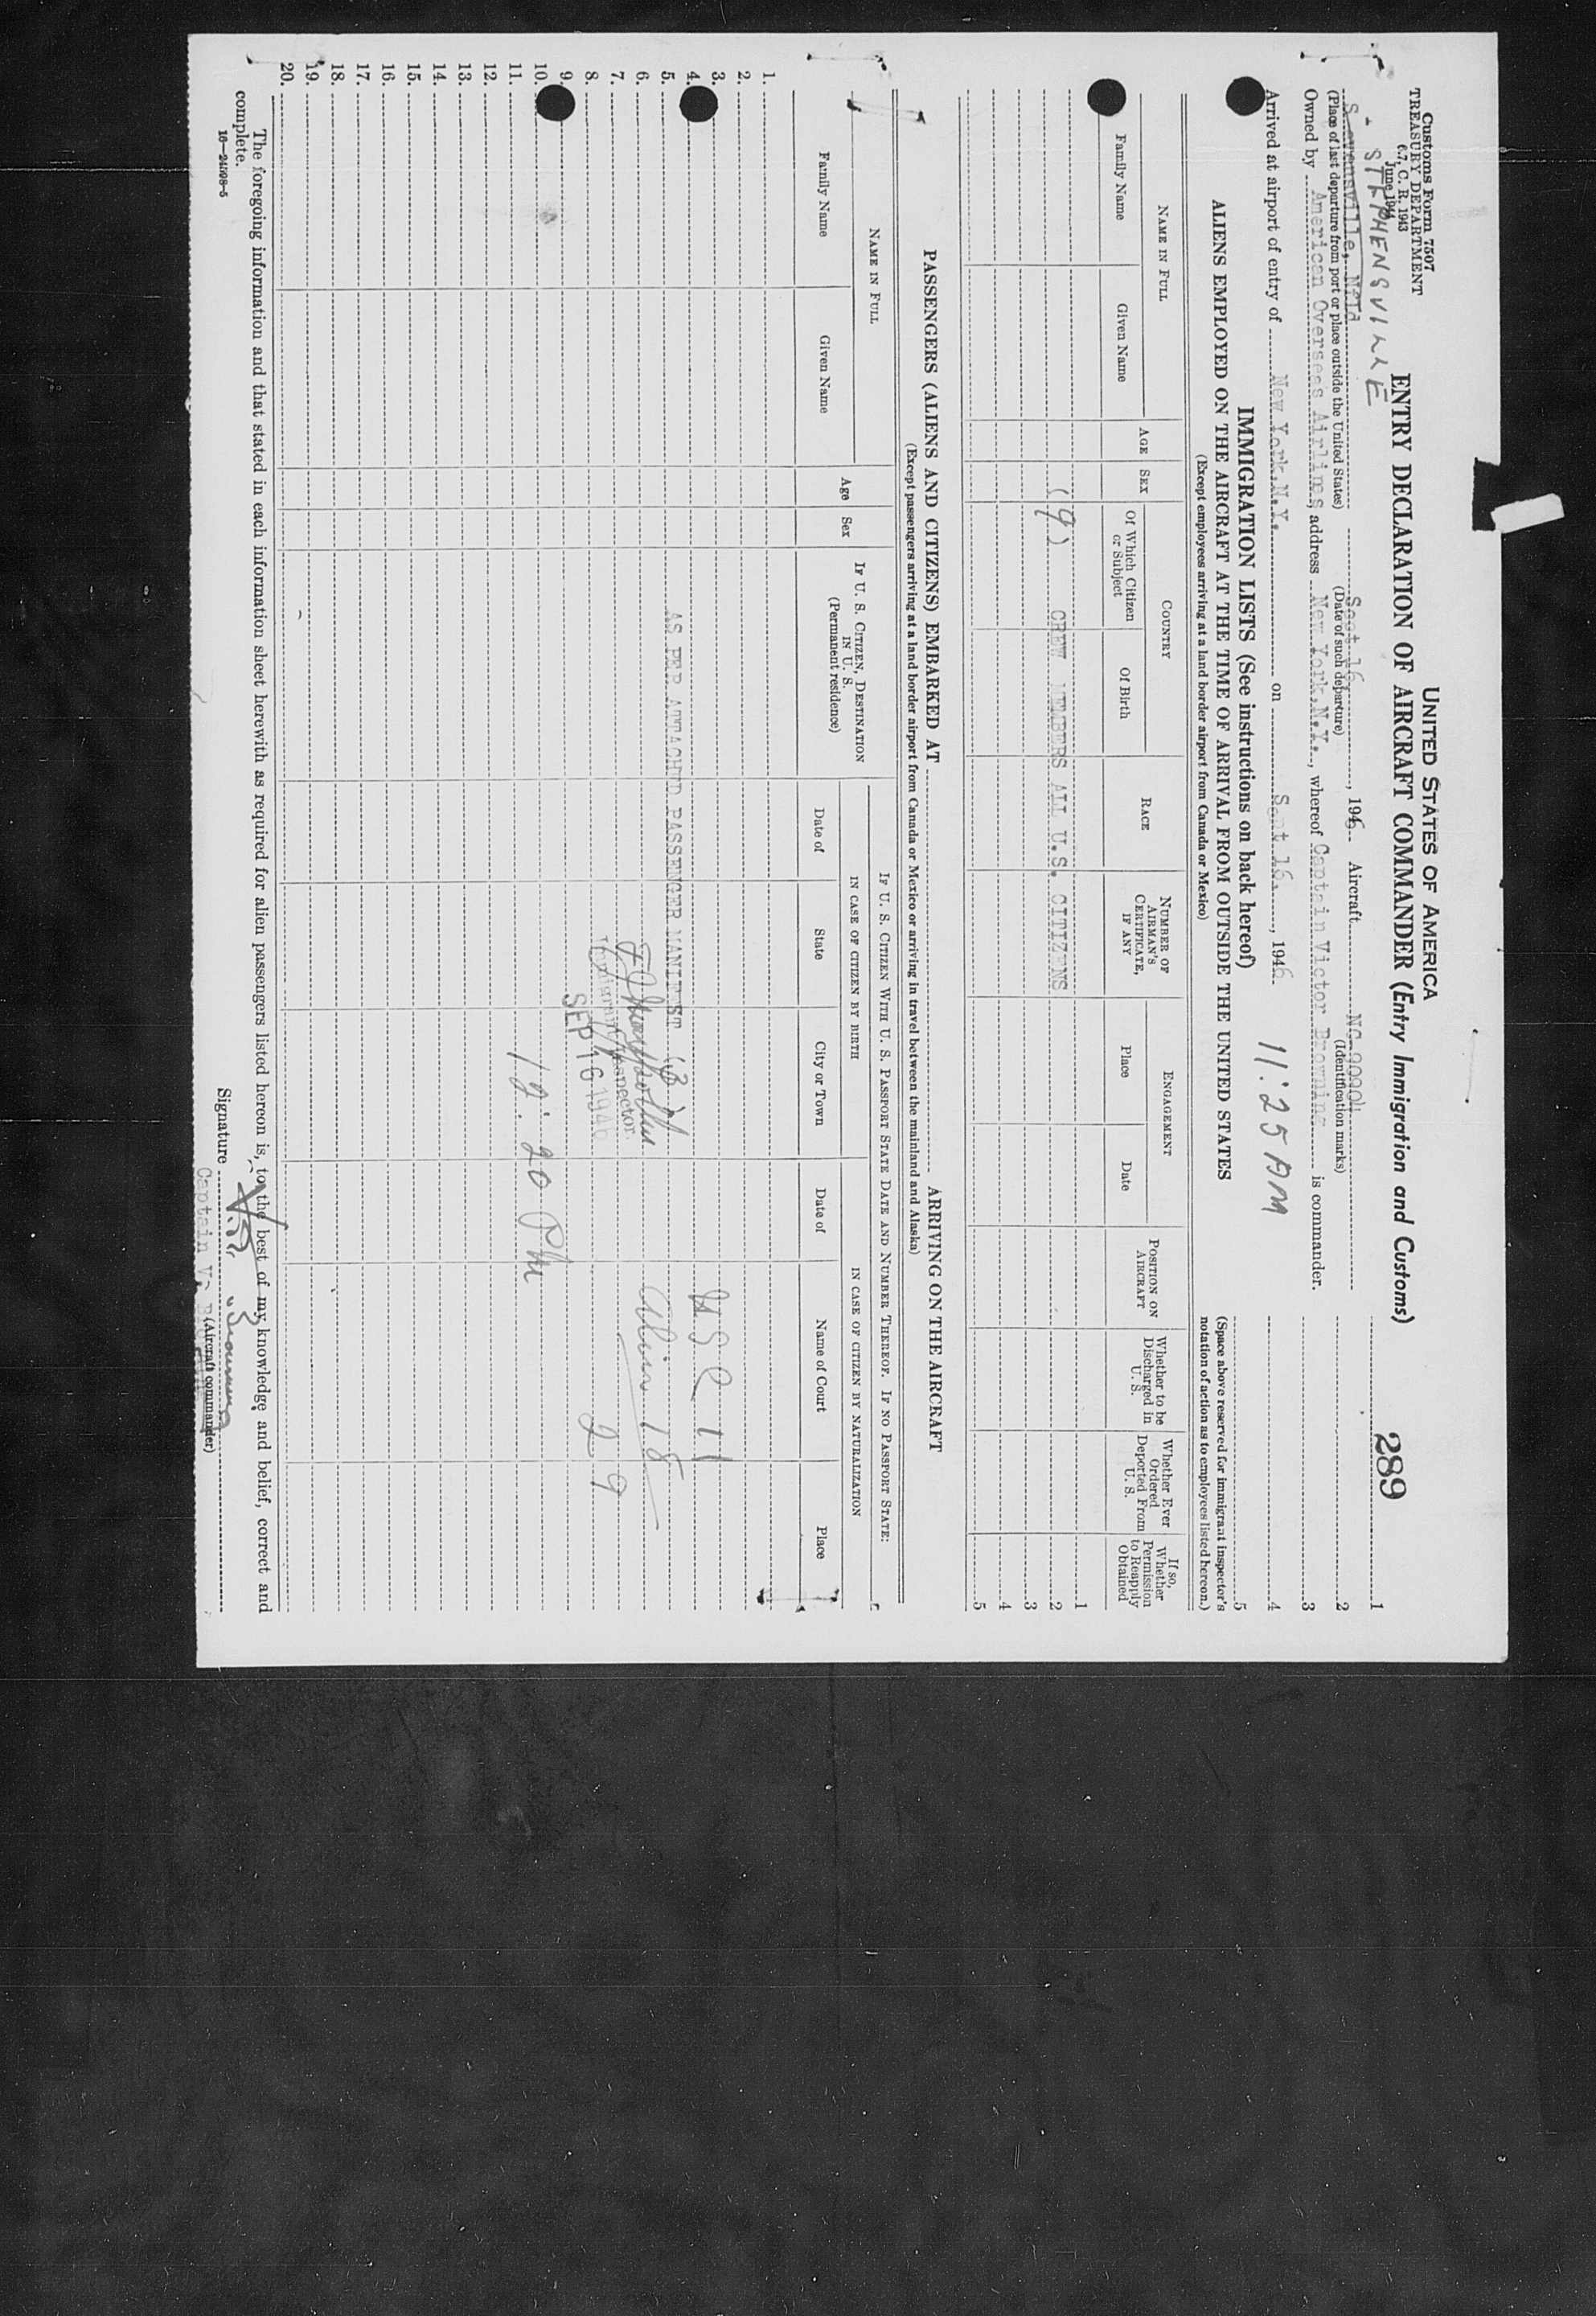 Customs Form 7507
TREASURY DEPARTMENT
6.7, C. R. 1943
June 1944
UNITED STATES OF AMERICA
ENTRY DECLARATION OF AIRCRAFT COMMANDER (Entry Immigration and Customs)
289
STEPHENSVILLE
Sept 16, 1946 Aircraft NC-90904
(Place of last departure from port or place outside the United States) (Date of such departure) (Identification marks)
Owned by American Overseas Airlines, address New York, N.Y., whereof Captain Victor Browning is commander.
Arrived at airport of entry of New York, N.Y. on Sept 16, 1946 11:25 AM
1
2
3
4
5
IMMIGRATION LISTS (See instructions on back hereof)
ALIENS EMPLOYED ON THE AIRCRAFT AT THE TIME OF ARRIVAL FROM OUTSIDE THE UNITED STATES
(Except employees arriving at a land border airport from Canada or Mexico)
(Space above reserved for immigrant inspector's notation of action as to employees listed hereon.)
NAME IN FULL
Family Name
Given Name
AGE
SEX
COUNTRY
Of Which Citizen or Subject
Of Birth
RACE
NUMBER OF AIRMAN'S CERTIFICATE, IF ANY
ENGAGEMENT
Place
Date
POSITION ON AIRCRAFT
Whether to be Discharged in U. S.
Whether Ever Ordered Deported From U. S.
If so, Whether Permission to Reapply Obtained
1
(9) CREW MEMBERS ALL U.S. CITIZENS 2
3
4
5
PASSENGERS (ALIENS AND CITIZENS) EMBARKED AT ARRIVING ON THE AIRCRAFT
(Except passengers arriving at a land border airport from Canada or Mexico or arriving in travel between the mainland and Alaska)
NAME IN FULL
Family Name
Given Name
Age
Sex
IF U. S. CITIZEN, DESTINATION IN U. S.
(Permanent residence)
IF U. S. CITIZEN WITH U. S. PASSPORT STATE DATE AND NUMBER THEREOF. IF NO PASSPORT STATE:
IN CASE OF CITIZEN BY BIRTH
Date of
State
City or Town
IN CASE OF CITIZEN BY NATURALIZATION
Date of
Name of Court
Place
1.
2.
3.
4. 11
5. AS PER ATTACHED PASSENGER MANIFEST
6. 18
7. Immigrant Inspector
8. SEP 16 1946 29
9.
10. 12:20 PM
11.
12.
13.
14.
15.
16.
17.
18.
19.
20.
The foregoing information and that stated in each information sheet herewith as required for alien passengers listed hereon is, to the best of my knowledge and belief, correct and
complete.
16—24598-5
Signature V. Browning
Captain V. (Aircraft commander)